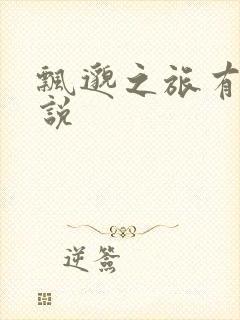 飄邈之旅有
說
逆簽